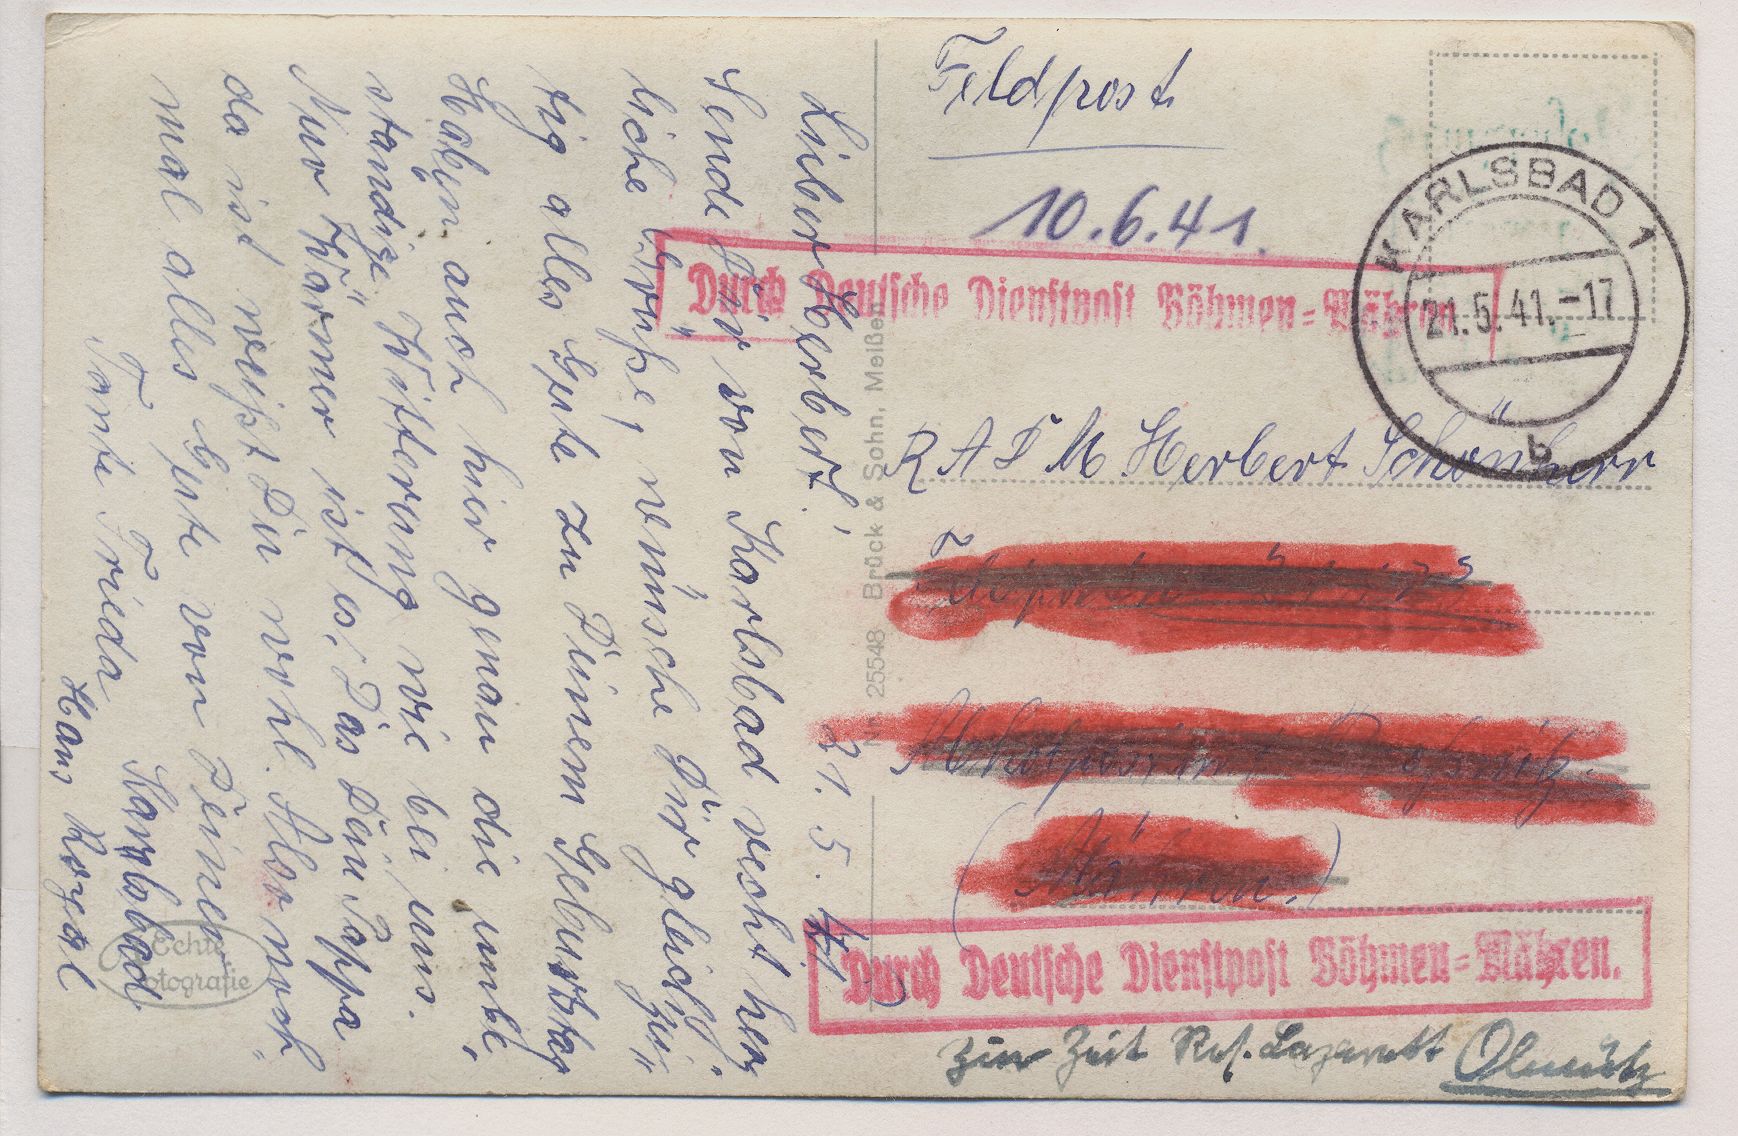 Feldpost
10.6.41.
KARLSBAD 1
21.5.41.-17
b
Durch Deutsche Dienstpost Böhmen=Mähren
R A D M Herbert Schönherr
(Mähren)
Durch Deutsche Dienstpost Böhmen=Mähren.
zur Zeit Res. Lazarett Olmütz
Nr. 25548 Brück & Sohn, Meißen
21. 5. 41.
Lieber Herbert!
Sende Dir von Karlsbad recht herz
liche Grüße, wünsche Dir gleichzei
tig alles Gute zu Deinem Geburtstag
Haben auch hier genau die unbe
ständige Witterung wie bei uns.
Nur Wärmer ist es. Das Dein Pappa
da ist weißt Du wohl. Also noch
mal alles Gute von Deinen
Tante Frieda Karlsbad
Haus
Echte
Fotografie